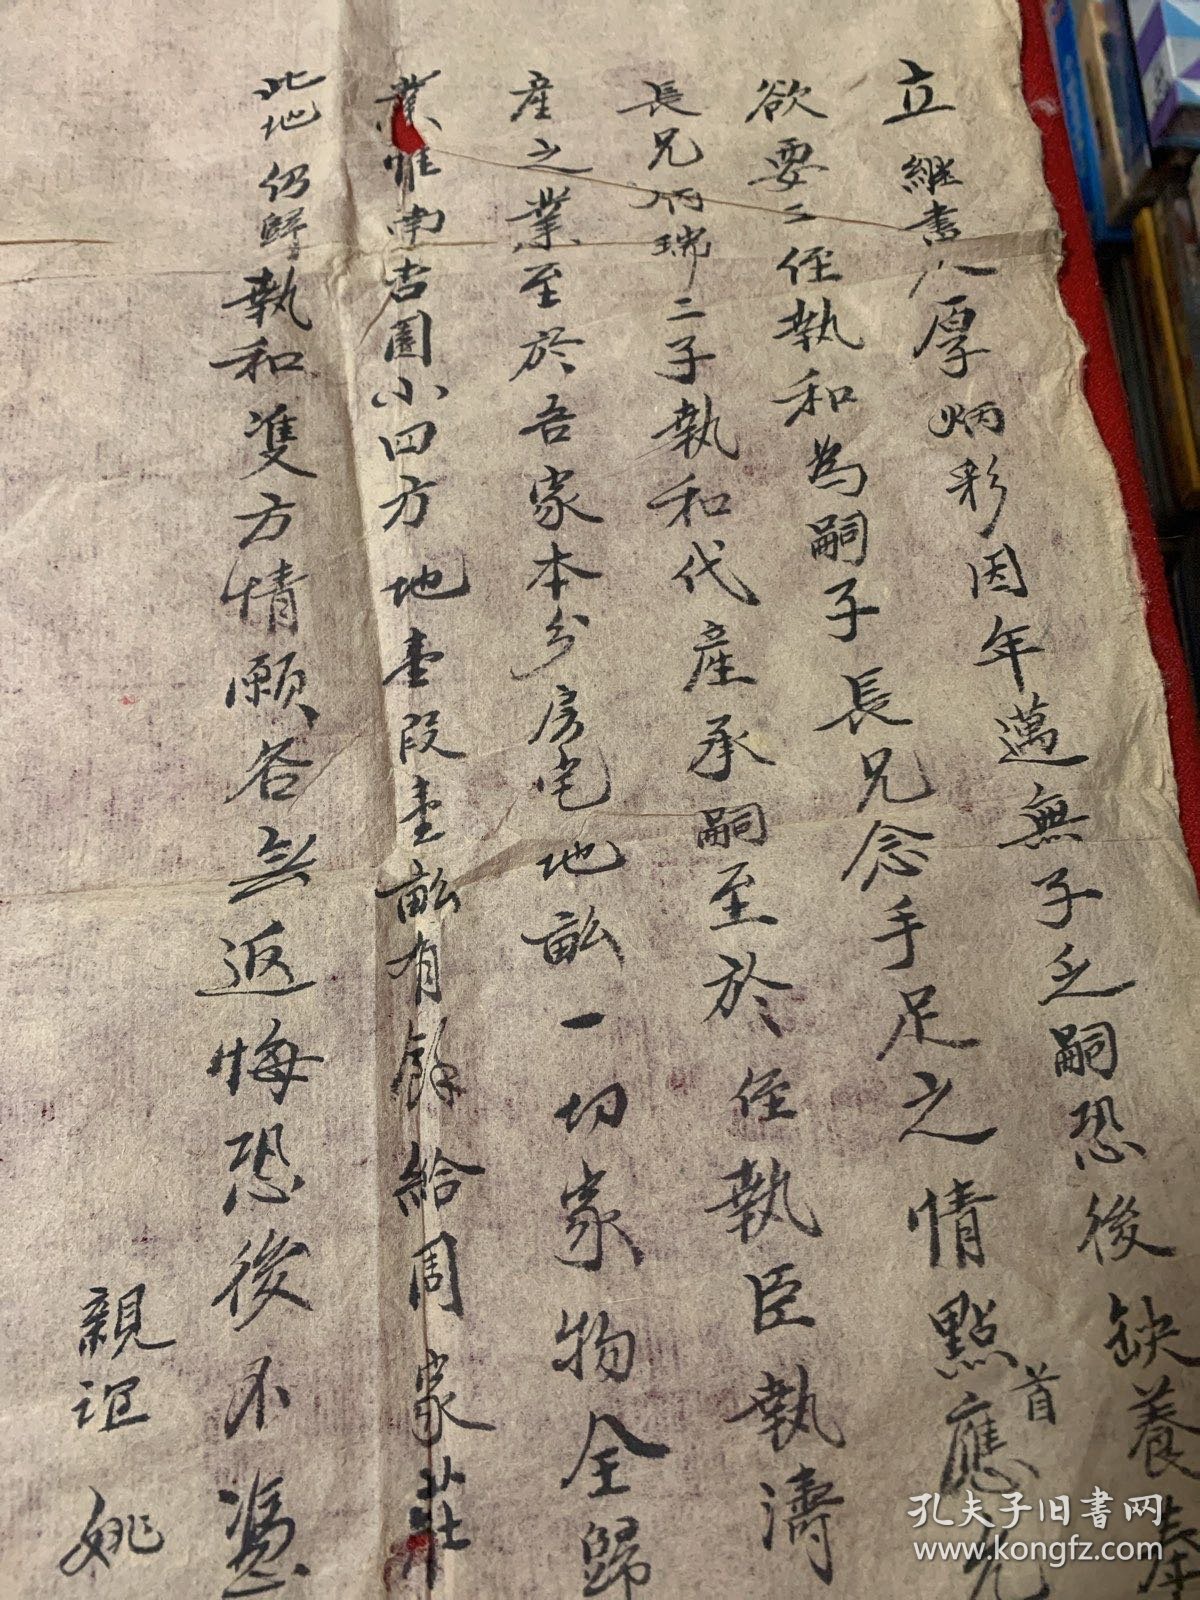 立繼書人厚炳彩因年邁無子之嗣恐後缺養奉
欲要二侄執和為嗣子長兄念手足之情點首應允
長兄炳瑞二子執和代產承嗣至於侄執臣執濤
產之業至於吾家本分房宅地畝一切家物全歸
業惟南吉園小四方地壹段壹畝有餘給周家莊
此地仍歸執和雙方情願各無返悔恐後不憑
親証 姚
孔夫子旧书网
www.kongfz.com